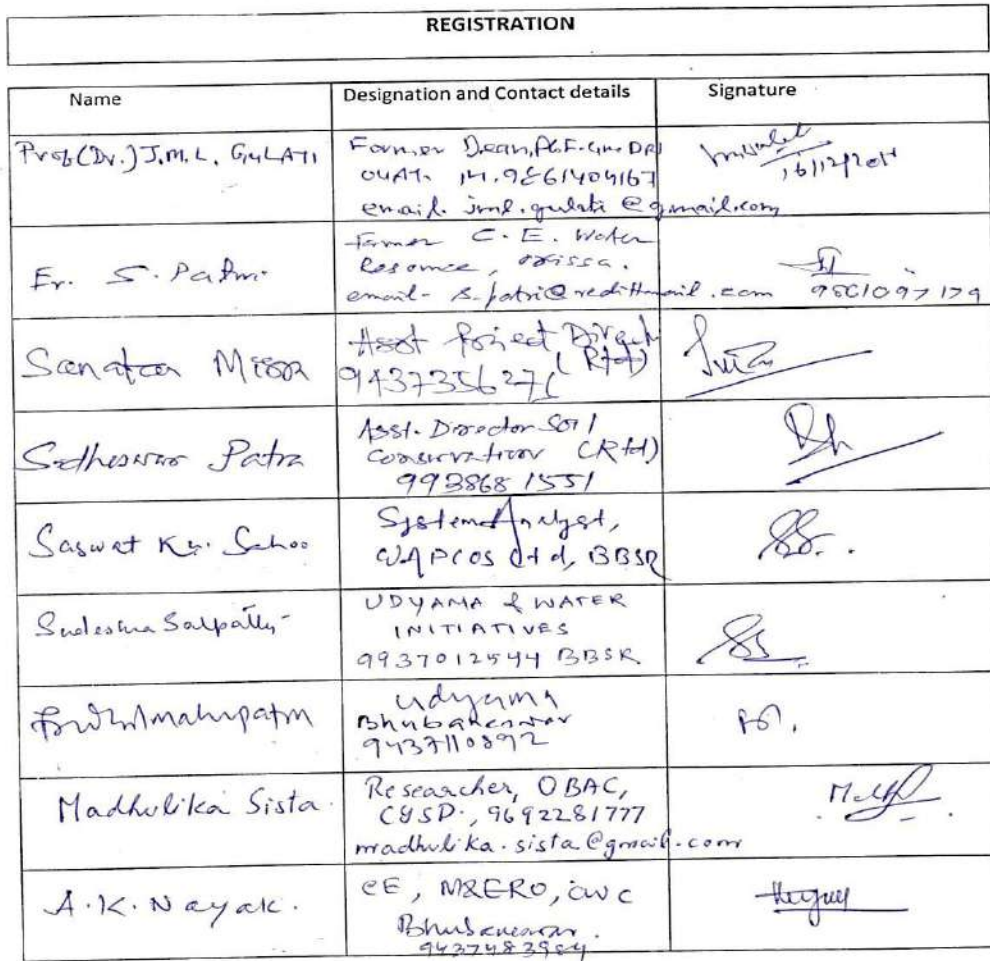 REGISTRATION
Name Designation and Contact details Signature
Prof(Dr.) J.M.L. GULATI
Former Dean,
OUAT.
email. jml.gulati @gmail.com
16/12/2014
Er. S. Patri.
Former C.E. Water
Resource, Orissa.
email- s.patri@rediffmail.com
Misra
Asst Project
(Rtd)
Patra
Asst. Director Soil
conservation (Rtd)
9938681551
Saswat Kr. Sahoo
System Analyst,
WAPCOS Ltd, BBSR
SS.
UDYAMA & WATER
INITIATIVES
9937012544 BBSR
Udyama
Bhubaneswar
9437110892
Madhulika Sista.
Researcher, OBAC,
CYSD., 9692281777
madhulika.sista@gmail.com
A.K. Nayak.
CE, M&ERO, CWC
Bhubaneswar.
9437483984